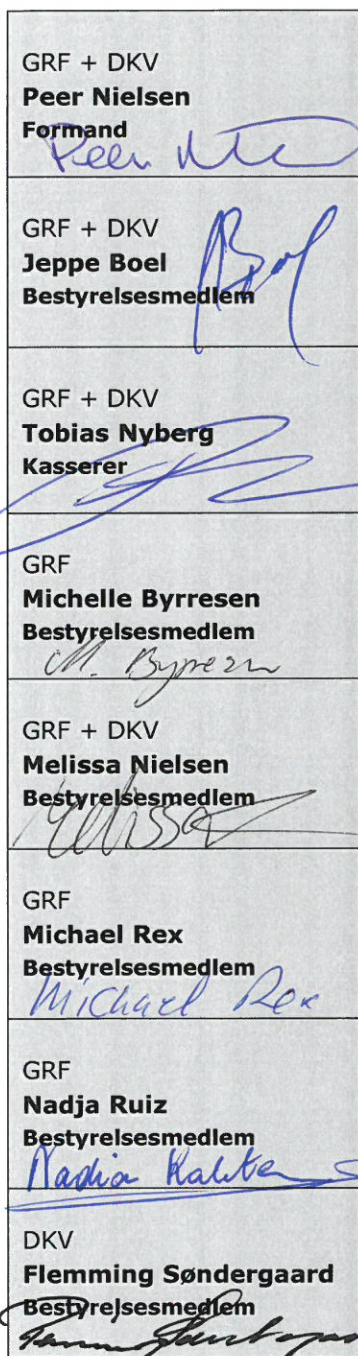 GRF + DKV
Peer Nielsen
Formand
Peer
GRF + DKV
Jeppe Boel
Bestyrelsesmedlem
Boel
GRF + DKV
Tobias Nyberg
Kasserer
GRF
Michelle Byrresen
Bestyrelsesmedlem
M. Byrresen
GRF + DKV
Melissa Nielsen
Bestyrelsesmedlem
Melissa
GRF
Michael Rex
Bestyrelsesmedlem
Michael Rex
GRF
Nadja Ruiz
Bestyrelsesmedlem
Nadia
DKV
Flemming Søndergaard
Bestyrelsesmedlem